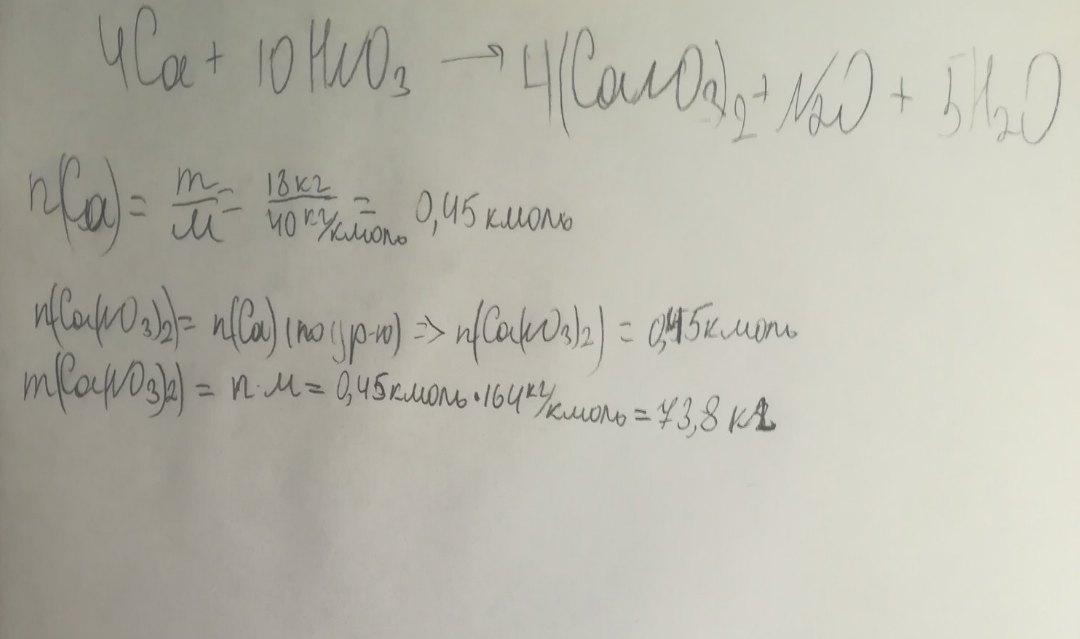 4Ca + 10HNO3 → 4(CaNO3)2 + N2O + 5H2O
n(Ca) = m/M = 18кг/40кг/кмоль = 0,45 кмоль
n(Ca(NO3)2) = n(Ca) (по ур-ю) => n(Ca(NO3)2) = 0,45 кмоль
m(Ca(NO3)2) = n·M = 0,45 кмоль·164 кг/кмоль = 73,8 кг